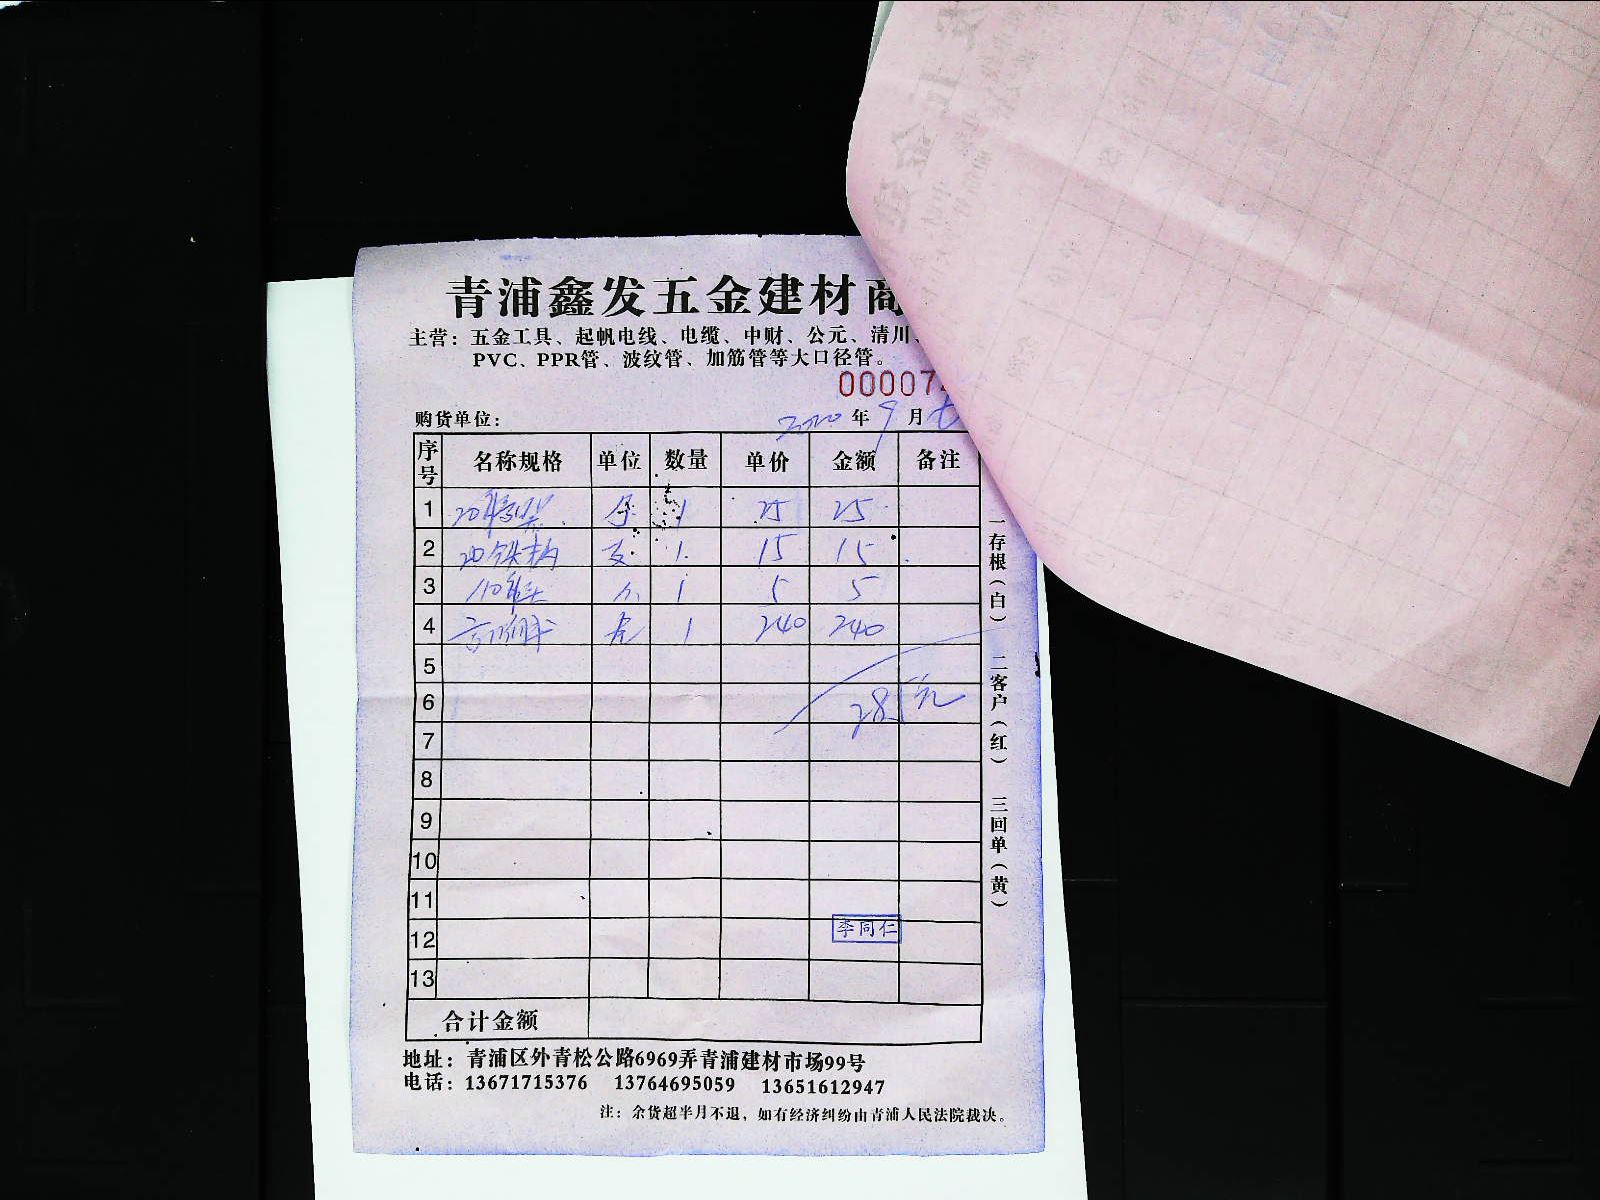 青浦鑫发五金建材商
主营：五金工具、起帆电线、电缆、中财、公元、清川、
PVC、PPR管、波纹管、加筋管等大口径管。
00007
购货单位： 2020 年 9 月
序号 名称规格 单位 数量 单价 金额 备注
1 20 1 25 25
2 20 支 1 15 15
3 110 个 1 5 5
4 1 240 240
5
6 285元
7
8
9
10
11
12 李同仁
13
合计金额
一存根（白） 二客户（红） 三回单（黄）
地址：青浦区外青松公路6969弄青浦建材市场99号
电话：13671715376 13764695059 13651612947
注：余货超半月不退，如有经济纠纷由青浦人民法院裁决。